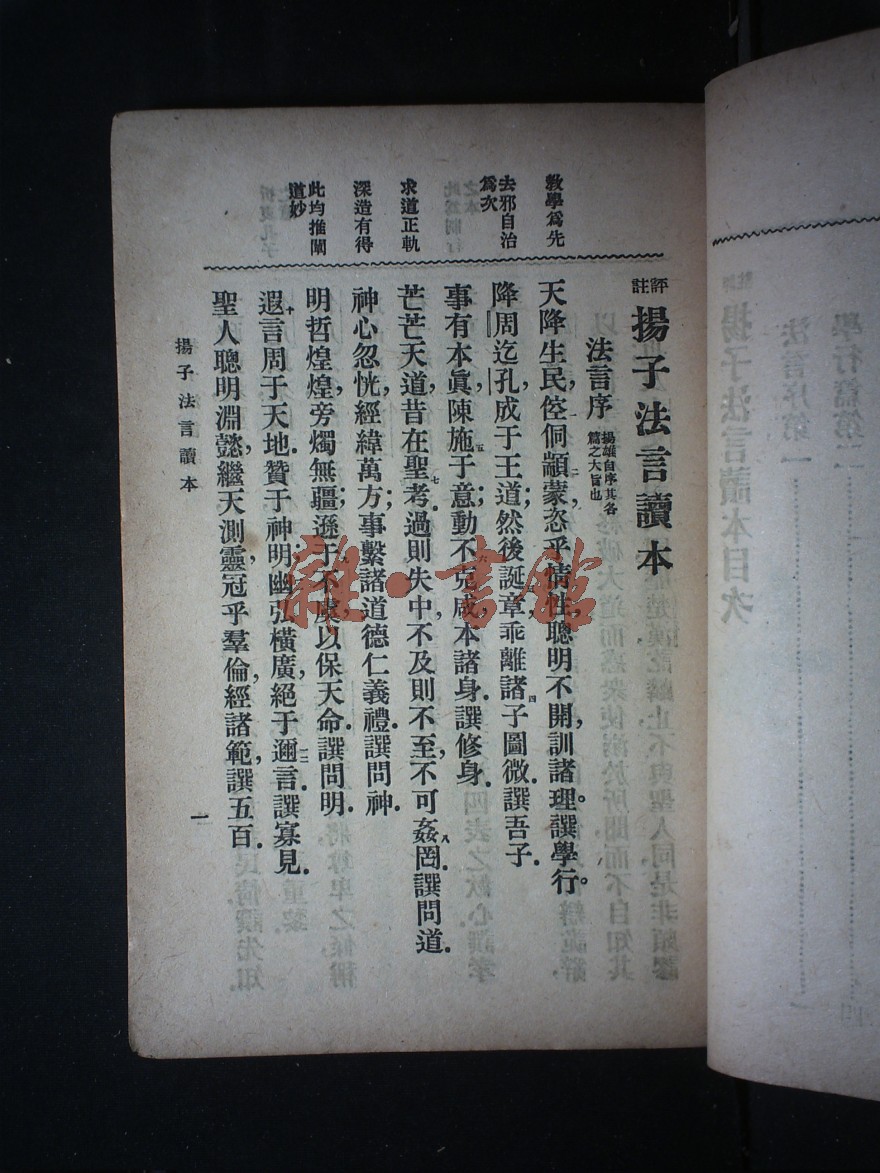 評註 揚子法言讀本
法言序 揚雄自序其各篇之大旨也
天降生民，倥侗顓蒙，恣乎情性，聰明不開，訓諸理。譔學行。
降周迄孔，成于王道；然後誕章乖離，諸子圖微。譔吾子。
事有本眞，陳施于意；動不克咸，本諸身。譔修身。
芒芒天道，昔在聖考，過則失中，不及則不至，不可姦罔。譔問道。
神心忽恍，經緯萬方；事繫諸道德仁義禮。譔問神。
明哲煌煌，旁燭無疆；遜于不虞，以保天命。譔問明。
遐言周于天地，贊于神明；幽弘橫廣，絕于邇言。譔寡見。
聖人聰明淵懿，繼天測靈，冠乎羣倫，經諸範。譔五百。
敎學爲先
去邪自治爲次
求道正軌
深造有得
此均推闡道妙
揚子法言讀本
一
雜·書館